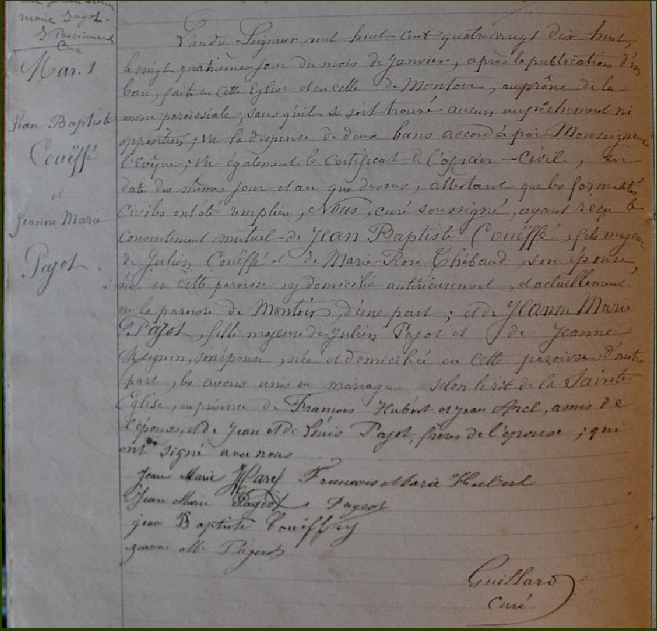 marie Pajot
Curé
Mar. 1
Jean Baptiste
Couëffé
et
Jeanne Marie
Pajot.
L'an du Seigneur mil huit cent quatre vingt dix huit,
le vingt quatrième jour du mois de Janvier, après la publication d'un
ban, faite en cette Eglise et en celle de Montoir, au prône de la
messe paroissiale, sans qu'il se soit trouvé aucun empêchement ni
opposition; vu la dispense de deux bans accordée par Monseigneur
l'Evêque; vu également le Certificat de l'officier-Civil, en
date des même jour et an que dessus, attestant que les formalités
Civiles ont été remplies, Nous, curé soussigné, ayant reçu le
Consentement mutuel de Jean Baptiste Couëffé, fils majeur
de Julien Couëffé et de Marie Rose Thébaud, son épouse,
né en cette paroisse, y domicilié antérieurement, et actuellement
en la paroisse de Montoir, d'une part; et de Jeanne Marie
Pajot, fille majeure de Julien Pajot et de Jeanne
son épouse, née et domiciliée en cette paroisse, d'autre
part, les avons unis en mariage selon le rit de la Sainte
Eglise, en présence de François Hubert et Jean amis de
l'époux, et de Jean et de Louis Pajot, frères de l'épouse; qui
ont signé avec nous
Jean Marie François Marie Hubert
Jean Marie Pageot Pageot
jean Baptiste
jeanne M. Pageot
Guillard
Curé